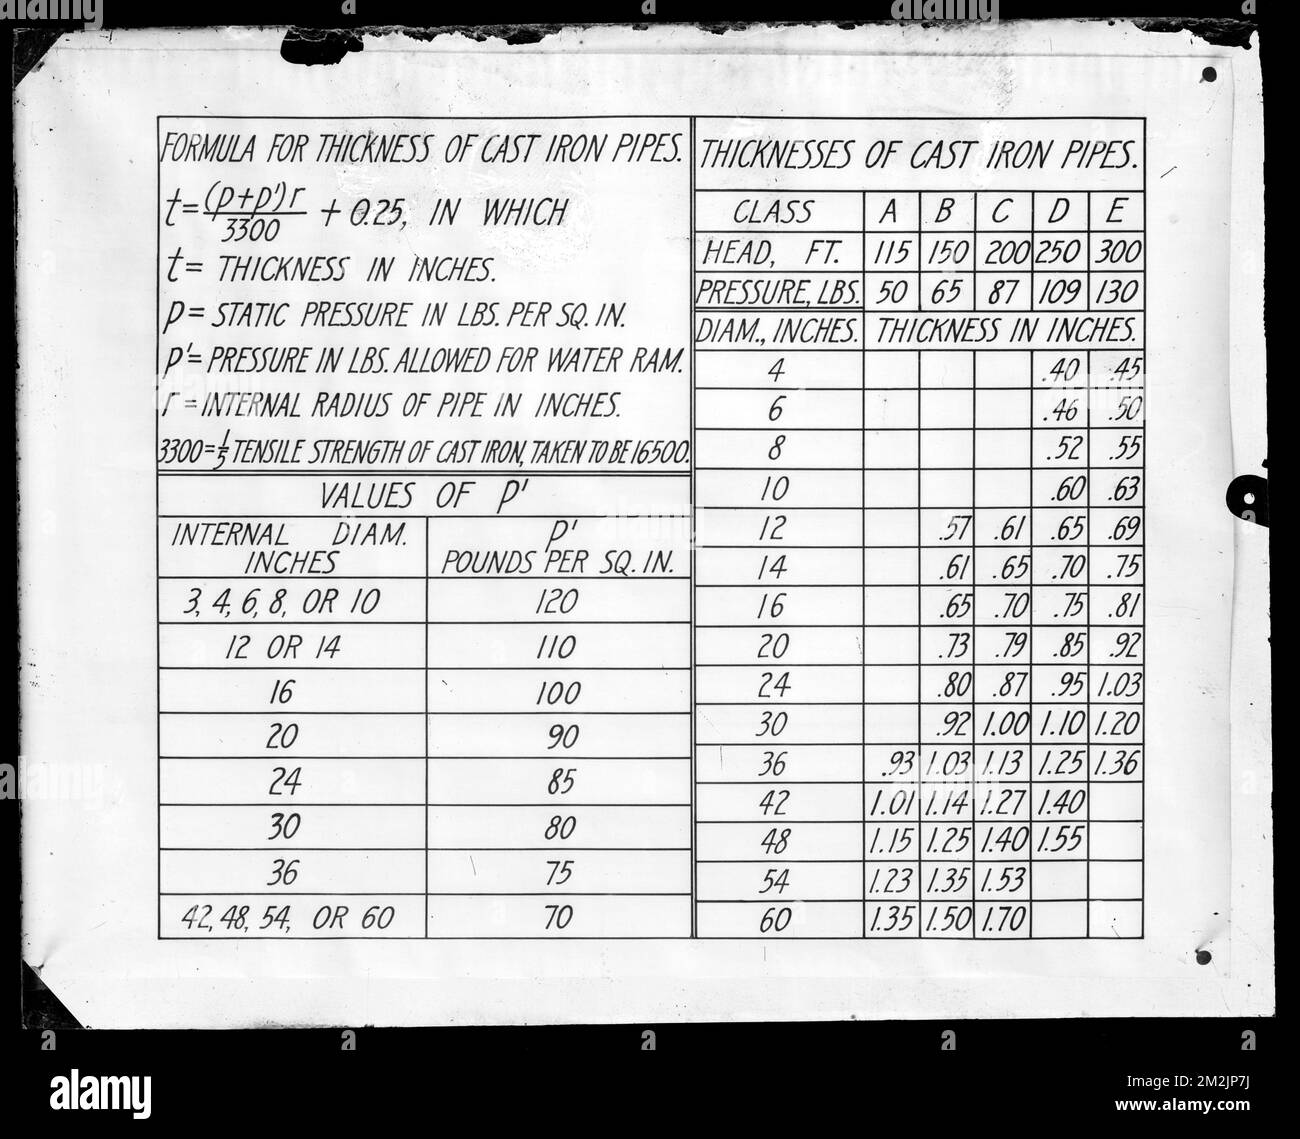 FORMULA FOR THICKNESS OF CAST IRON PIPES.
t=(p+p')r/3300 + 0.25, IN WHICH
t= THICKNESS IN INCHES.
p= STATIC PRESSURE IN LBS. PER SQ. IN.
p'= PRESSURE IN LBS. ALLOWED FOR WATER RAM.
r =INTERNAL RADIUS OF PIPE IN INCHES.
3300=1/5 TENSILE STRENGTH OF CAST IRON, TAKEN TO BE 16500.
VALUES OF p'
INTERNAL DIAM. INCHES p' POUNDS PER SQ. IN.
3, 4, 6, 8, OR 10 120
12 OR 14 110
16 100
20 90
24 85
30 80
36 75
42, 48, 54, OR 60 70
THICKNESSES OF CAST IRON PIPES.
CLASS A B C D E
HEAD, FT. 115 150 200 250 300
PRESSURE, LBS. 50 65 87 109 130
DIAM., INCHES. THICKNESS IN INCHES.
4 .40 .45
6 .46 .50
8 .52 .55
10 .60 .63
12 .57 .61 .65 .69
14 .61 .65 .70 .75
16 .65 .70 .75 .81
20 .73 .79 .85 .92
24 .80 .87 .95 1.03
30 .92 1.00 1.10 1.20
36 .93 1.03 1.13 1.25 1.36
42 1.01 1.14 1.27 1.40
48 1.15 1.25 1.40 1.55
54 1.23 1.35 1.53
60 1.35 1.50 1.70
alamy
Image ID: 2M2JP7J
www.alamy.com